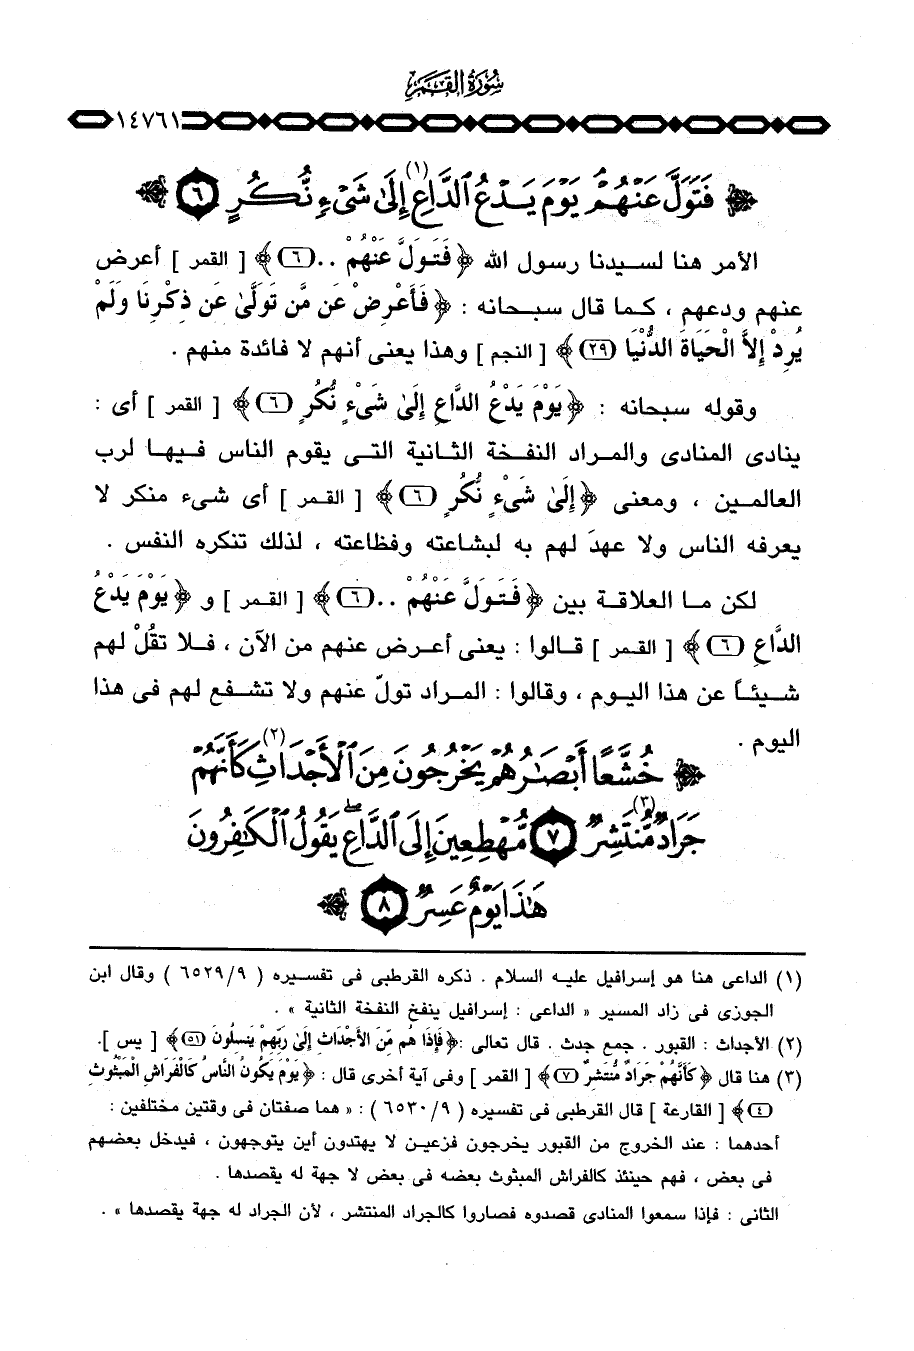 سُورَةُ القَمَرِ
١٤٧٦١
﴿ فَتَوَلَّ عَنْهُمْ يَوْمَ يَدْعُ الدَّاعِ (١) إِلَىٰ شَيْءٍ نُّكُرٍ ٦ ﴾
الأمر هنا لسيدنا رسول الله ﴿ فَتَوَلَّ عَنْهُمْ .. (٦) ﴾ [ القمر ] أعرض
عنهم ودعهم ، كما قال سبحانه : ﴿ فَأَعْرِضْ عَن مَّن تَوَلَّىٰ عَن ذِكْرِنَا وَلَمْ
يُرِدْ إِلاَّ الْحَيَاةَ الدُّنْيَا (٢٩) ﴾ [ النجم ] وهذا يعنى أنهم لا فائدة منهم .
وقوله سبحانه : ﴿ يَوْمَ يَدْعُ الدَّاعِ إِلَىٰ شَيْءٍ نُّكُرٍ (٦) ﴾ [ القمر ] أى :
ينادى المنادى والمراد النفخة الثانية التى يقوم الناس فيها لرب
العالمين ، ومعنى ﴿ إِلَىٰ شَيْءٍ نُّكُرٍ (٦) ﴾ [ القمر ] أى شىء منكر لا
يعرفه الناس ولا عهدَ لهم به لبشاعته وفظاعته ، لذلك تنكره النفس .
لكن ما العلاقة بين ﴿ فَتَوَلَّ عَنْهُمْ .. (٦) ﴾ [ القمر ] و ﴿ يَوْمَ يَدْعُ
الدَّاعِ (٦) ﴾ [ القمر ] قالوا : يعنى أعرض عنهم من الآن ، فلا تقُلْ لهم
شيئاً عن هذا اليوم ، وقالوا : المراد تولّ عنهم ولا تشفع لهم فى هذا
اليوم .
﴿ خُشَّعًا أَبْصَـٰرُهُمْ يَخْرُجُونَ مِنَ الْأَجْدَاثِ (٢) كَأَنَّهُمْ
جَرَادٌ مُّنتَشِرٌ (٣) ٧ مُّهْطِعِينَ إِلَى الدَّاعِ ۖ يَقُولُ الْكَـٰفِرُونَ
هَـٰذَا يَوْمٌ عَسِرٌ ٨ ﴾
(١) الداعى هنا هو إسرافيل عليه السلام . ذكره القرطبى فى تفسيره ( ٩/ ٦٥٢٩ ) وقال ابن
الجوزى فى زاد المسير « الداعى : إسرافيل ينفخ النفخة الثانية » .
(٢) الأجداث : القبور . جمع جدث . قال تعالى :﴿ فَإِذَا هُم مِّنَ الأَجْدَاثِ إِلَىٰ رَبِّهِمْ يَنسِلُونَ (٥١) ﴾ [ يس ].
(٣) هنا قال ﴿ كَأَنَّهُمْ جَرَادٌ مُّنتَشِرٌ (٧) ﴾ [ القمر ] وفى آية أخرى قال : ﴿ يَوْمَ يَكُونُ النَّاسُ كَالْفَرَاشِ الْمَبْثُوثِ
(٤) ﴾ [ القارعة ] قال القرطبى فى تفسيره ( ٩/ ٦٥٣٠ ) : « هما صفتان فى وقتين مختلفين :
أحدهما : عند الخروج من القبور يخرجون فزعين لا يهتدون أين يتوجهون ، فيدخل بعضهم
فى بعض ، فهم حينئذ كالفراش المبثوث بعضه فى بعض لا جهة له يقصدها .
الثانى : فإذا سمعوا المنادى قصدوه فصاروا كالجراد المنتشر ، لأن الجراد له جهة يقصدها » .